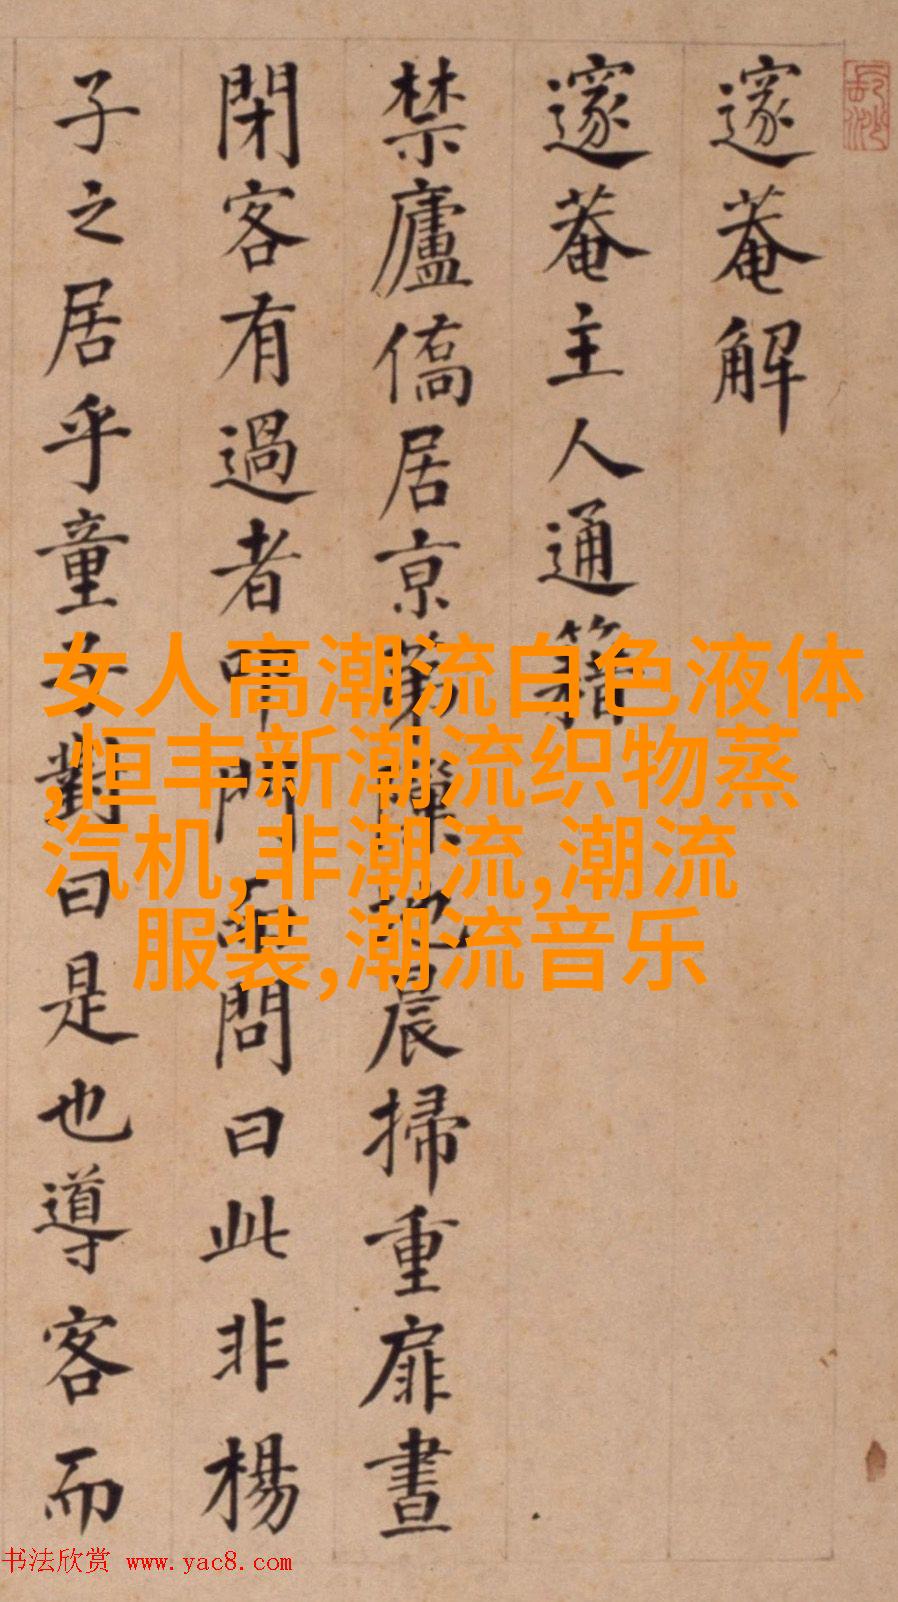 邃菴解
邃菴主人通籍
禁廬僑居京第陳地晨掃重扉晝
閉客有過者叩門而問曰此非楊
子之居乎童子對曰是也導客而
女人高潮流白色液体
,恒丰新潮流织物蒸
汽机,非潮流,潮流
服装,潮流音乐
书法欣赏 www.yac8.com